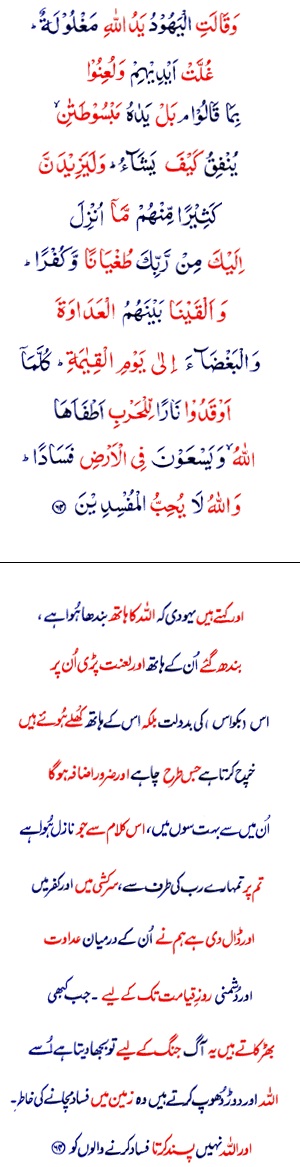 وَقَالَتِ الْيَهُوْدُ يَدُ اللّٰهِ مَغْلُوْلَةٌ ۭ
غُلَّتْ اَيْدِيْهِمْ وَلُعِنُوْا
بِمَا قَالُوْا ۘ بَلْ يَدٰهُ مَبْسُوْطَتٰنِ ۙ
يُنْفِقُ كَيْفَ يَشَاۗءُ ۭ وَلَيَزِيْدَنَّ
كَثِيْرًا مِّنْهُمْ مَّاۤ اُنْزِلَ
اِلَيْكَ مِنْ رَّبِّكَ طُغْيَانًا وَّكُفْرًا ۭ
وَاَلْقَيْنَا بَيْنَهُمُ الْعَدَاوَةَ
وَالْبَغْضَاۗءَ اِلٰى يَوْمِ الْقِيٰمَةِ ۭ كُلَّمَاۤ
اَوْقَدُوْا نَارًا لِّلْحَرْبِ اَطْفَاَهَا
اللّٰهُ ۙ وَيَسْعَوْنَ فِى الْاَرْضِ فَسَادًا ۭ
وَاللّٰهُ لَا يُحِبُّ الْمُفْسِدِيْنَ ﴿۶۴﴾
اور کہتے ہیں یہودی کہ اللہ کا ہاتھ بندھا ہُوا ہے ،
بندھ گئے اُن کے ہاتھ اور لعنت پڑی اُن پر
اس (بکواس) کی بددلت بلکہ اس کے ہاتھ کُھلے ہُوئے ہیں
خرچ کرتا ہے جس طرح چاہے اور ضرور اضافہ ہوگا
اُن میں سے بہت سوں میں، اس کلام سے جو نازل ہُوا ہے
تم پر تمہارے رب کی طرف سے، سرکشی میں اور کفر میں
اور ڈال دی ہے ہم نے اُن کے درمیان عداوت
اور دُشمنی روزِ قیامت تک کے لیے ۔ جب کبھی
بھڑکاتے ہیں یہ آگ جنگ کے لیے تو بجھا دیتا ہے اُسے
اللہ اور دوڑ دُھوپ کرتے ہیں وہ زمین میں فساد مچانے کی خاطر۔
اور اللہ نہیں پسند کرتا فساد کرنے والوں کو ﴿۶۴﴾